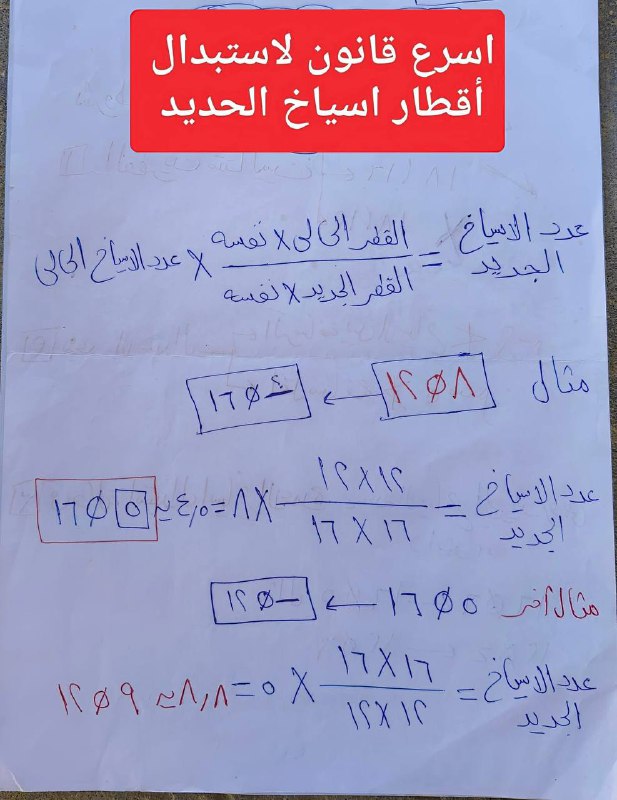 اسرع قانون لاستبدال
أقطار اسياخ الحديد
عدد الاسياخ الجديد = القطر الحالى X نفسه / القطر الجديد X نفسه X عدد الاسياخ الحالى
مثال ٨ Ø ١٢ ← - Ø ١٦
عدد الاسياخ الجديد = ١٢ X ١٢ / ١٦ X ١٦ X ٨ = ٤,٥ ≈ ٥ Ø ١٦
مثال آخر ٥ Ø ١٦ ← - Ø ١٢
عدد الاسياخ الجديد = ١٦ X ١٦ / ١٢ X ١٢ X ٥ = ٨,٨ ≈ ٩ Ø ١٢